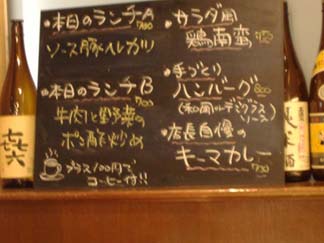 ・本日のランチA 700
ソース豚ヘレカツ
・本日のランチB 700
牛肉と野菜の
ポン酢炒め
プラス100円で
コーヒー付!!
・サラダ風
鶏南蛮 750
・手づくり
ハンバーグ 800
(和風orデミグラス
ソース)
・店長自慢の
キーマカレー 750